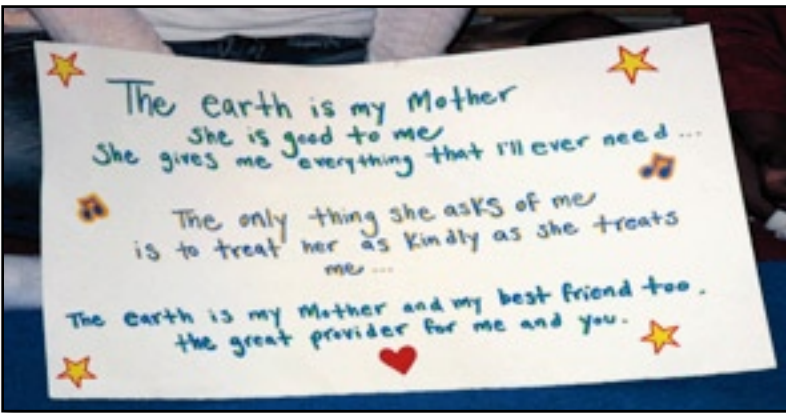 The earth is my Mother
She is good to me
She gives me everything that I'll ever need ...
The only thing she asks of me
is to treat her as kindly as she treats
me ...
The earth is my Mother and my best friend too.
the great provider for me and you.